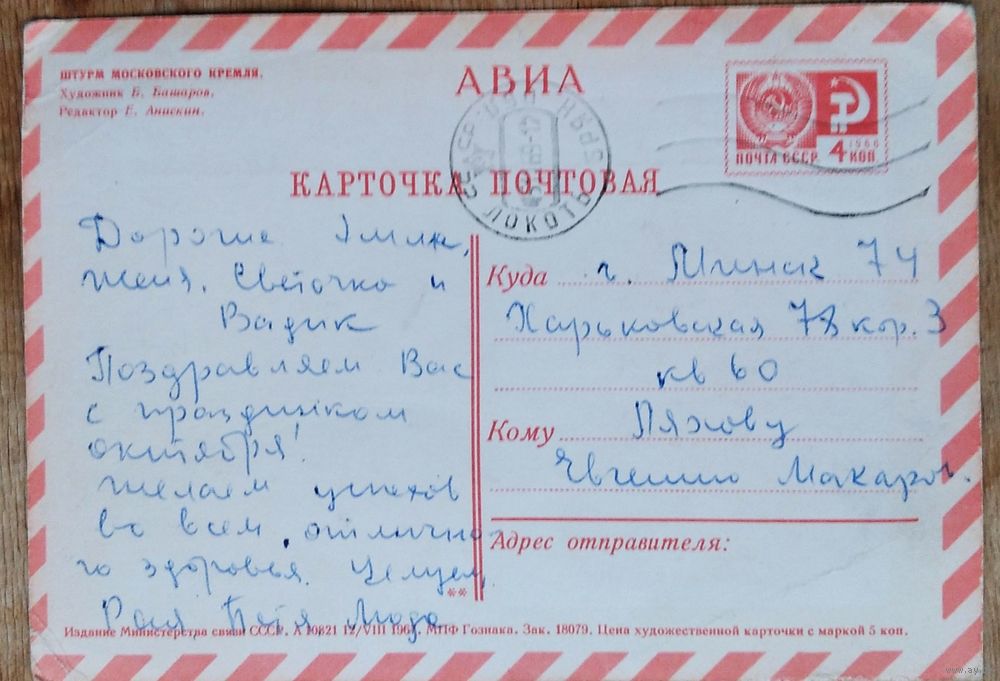 ШТУРМ МОСКОВСКОГО КРЕМЛЯ.
Художник Б. Башаров.
Редактор Е. Анискин.
АВИА
ПОЧТА СССР
1966
4 КОП
КАРТОЧКА ПОЧТОВАЯ
ЛОКОТЬ
Дорогие
Женя, Светочка и
Вадик
Поздравляем Вас
с праздником
октября!
Желаем успехов
во всем, отлично
го здоровья. Целуем
Рая Люда
Куда г. Минск 74
Харьковская 78 кор. 3
кв 60
Кому Ляхову
Евгению Макаров.
Адрес отправителя:
**
Издание Министерства связи СССР. А 10821 12/VIII МПФ Гознака. Зак. 18079. Цена художественной карточки с маркой 5 коп.